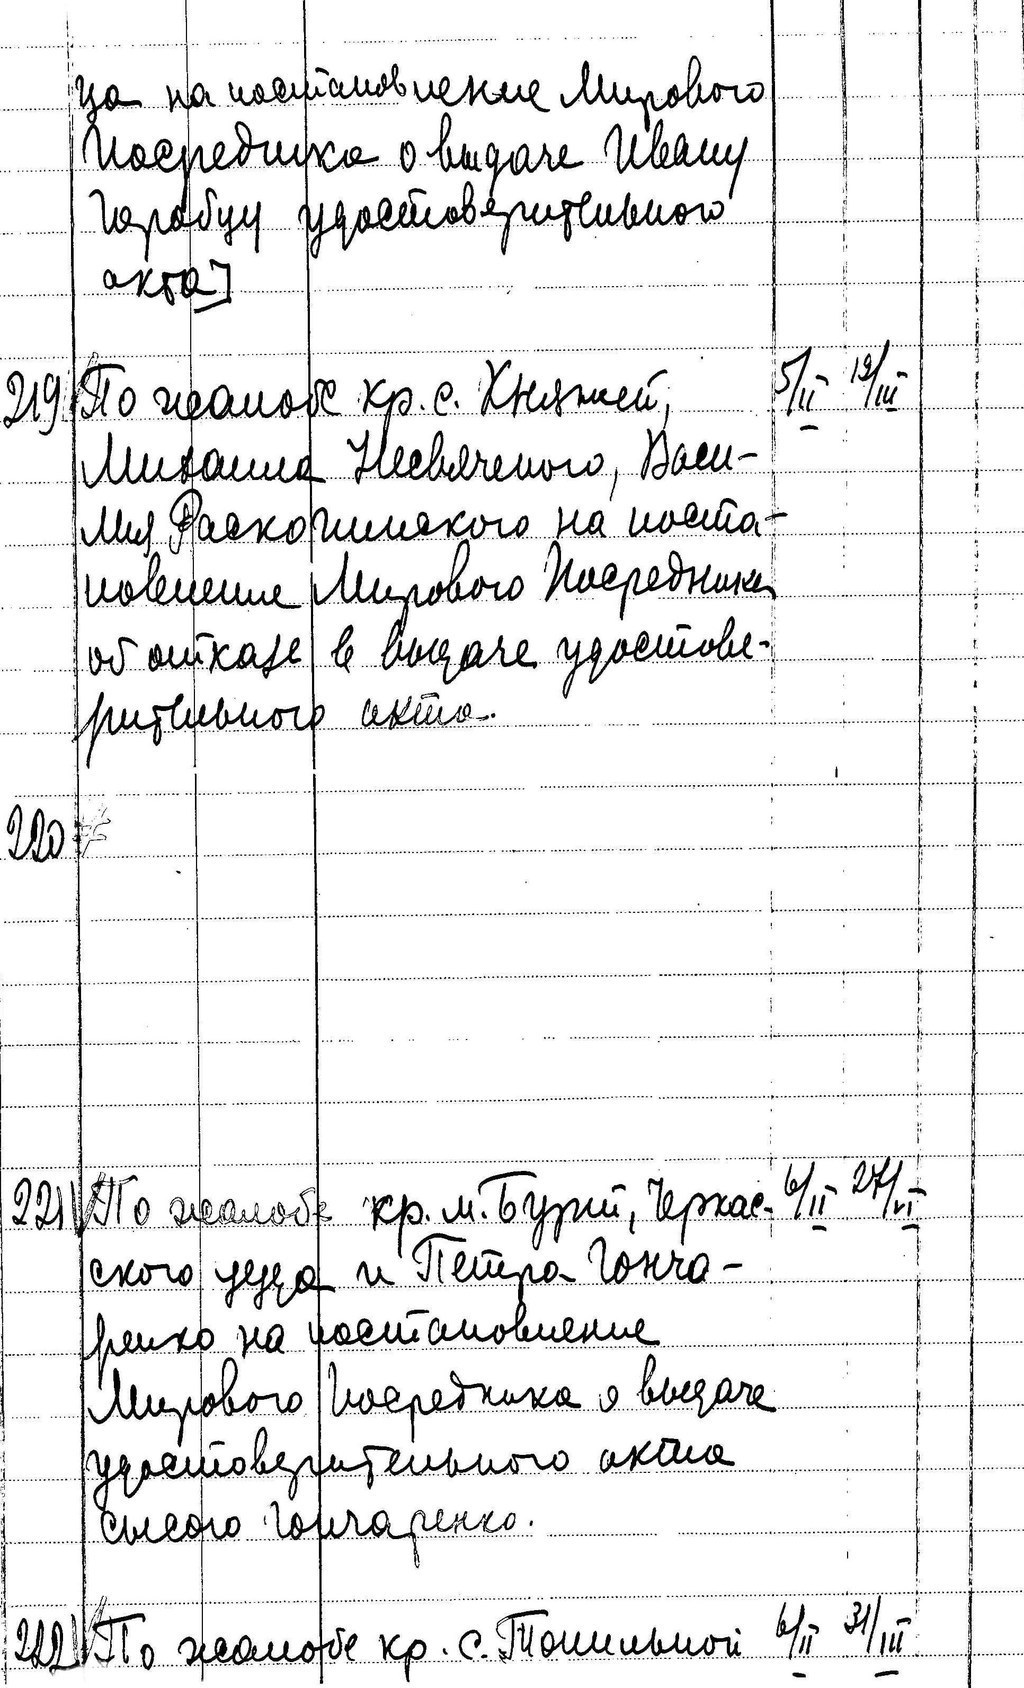 ца на постановление Мирового
Посредника о выдаче Ивану
Горобцу удостоверительного
акта]
219 По жалобе кр. с. Княжей, 5/II 12/III
Михаила Несвяченого, Васи-
лия на поста-
новление Мирового Посредника
об отказе в выдаче удостове-
рительного акта.
220
221 По жалобе кр. м. Бузни, Черкас- 6/II 27/VI
ского уезда и Петра Гонча-
ренко на постановление
Мирового Посредника о выдаче
удостоверительного акта
Гончаренко.
222 По жалобе кр. с. Топильной 6/II 31/III